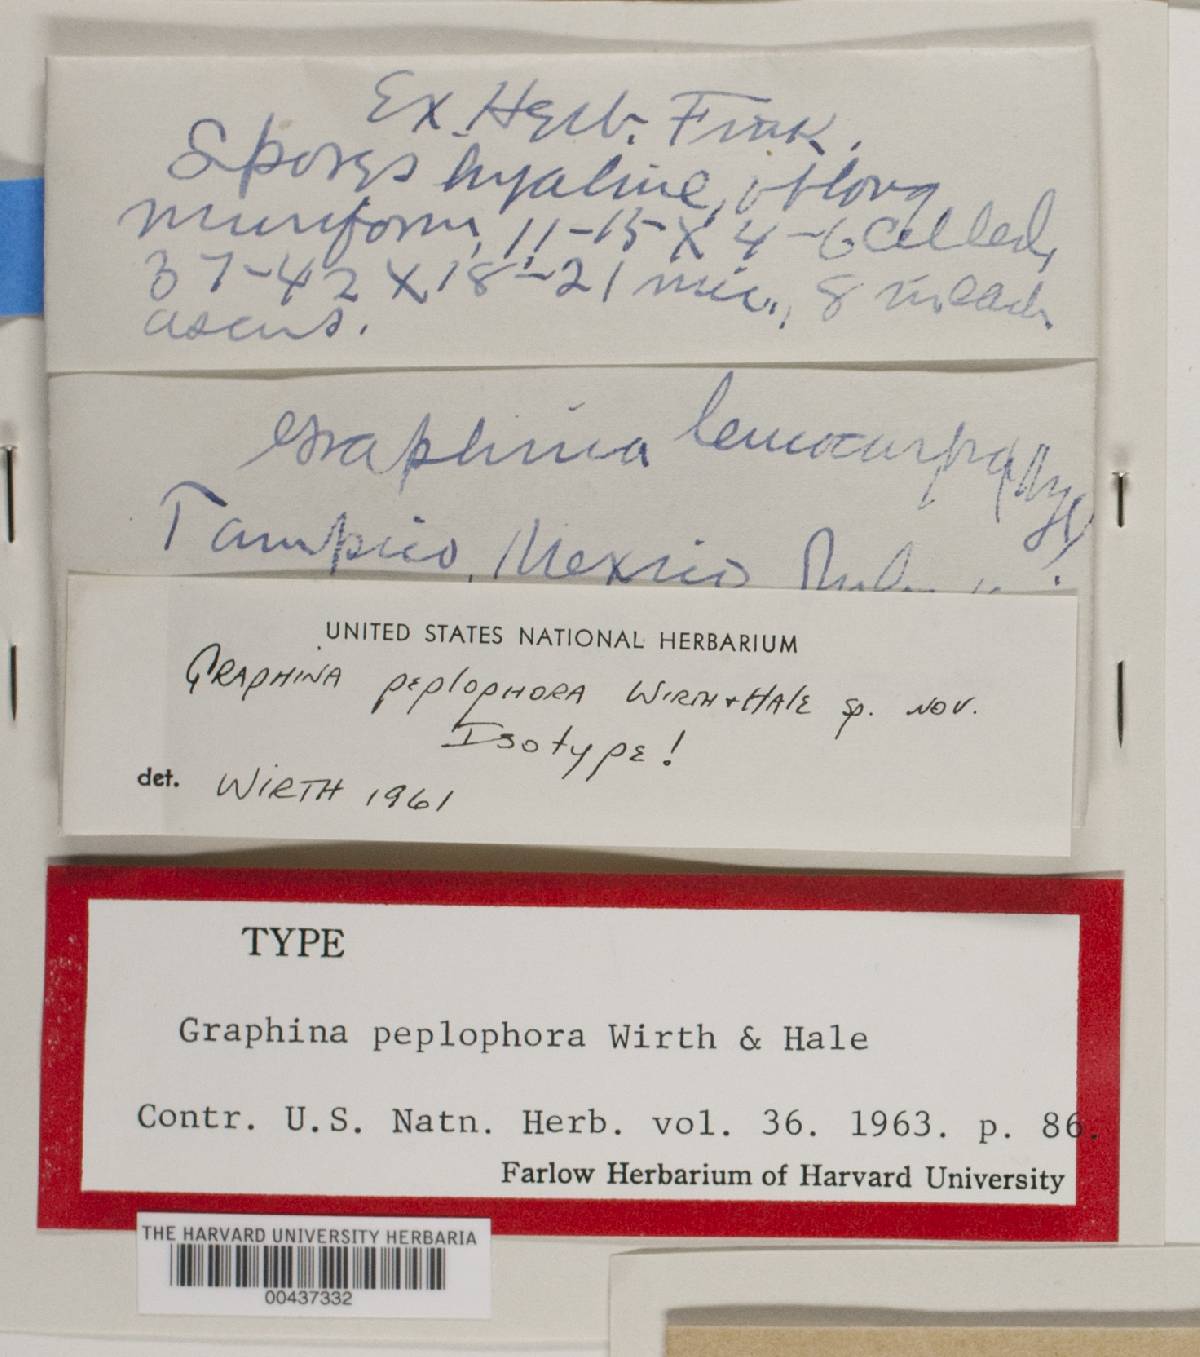 Ex. Herb. Fink.
Spores hyaline, oblong
muriform, 11-15 X 4-6 celled,
37-42 X 18-21 mic., 8 in each
ascus.
Graphina leucocarpa
Tampico, Mexico
UNITED STATES NATIONAL HERBARIUM
GRAPHINA peplophora WIRTH + HALE sp. NOV.
Isotype!
det. WIRTH 1961
TYPE
Graphina peplophora Wirth & Hale
Contr. U.S. Natn. Herb. vol. 36. 1963. p. 86.
Farlow Herbarium of Harvard University
THE HARVARD UNIVERSITY HERBARIA
00437332